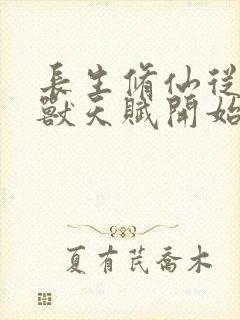 長生脩仙從
獸天賦開始
夏有芪喬木